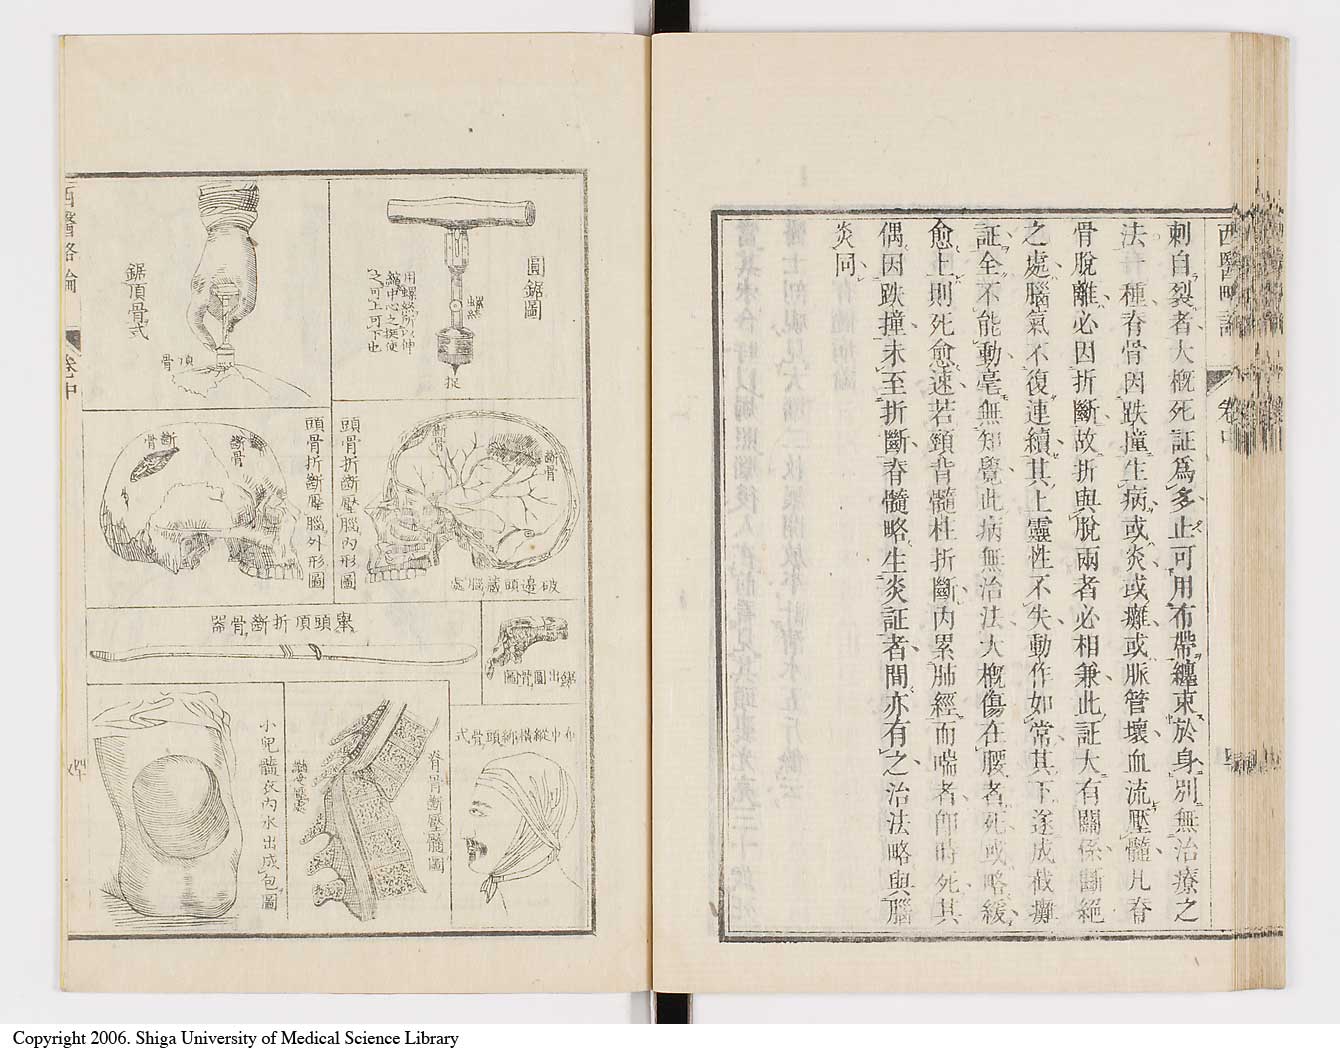 西醫略論
卷中
刺自裂者大概死証爲多止可用布帶纏束於身別無治療之
法一種脊骨因跌撞生病或炎或癱或脈管壞血流壓髓凡脊
骨脫離必因折斷故折與脫兩者必相兼此証大有關係斷絕
之處腦氣不復連續其上靈性不失動作如常其下遂成截癱
証全不能動毫無知覺此病無治法大概傷在腰者死或略緩
愈上則死愈速若頸背髓柱折斷內累肺經而喘者卽時死其
偶因跌撞未至折斷脊髓略生炎証者間亦有之治法略與腦
炎同
圓鋸圖
螺絲
用螺絲所以伸
縮中心之挺使
之可上可下也
挺
鋸頂骨式
頂骨
頭骨折斷壓腦內形圖
斷骨
斷骨
破邊頭藏腦處
頭骨折斷壓腦外形圖
斷骨
斷骨
舉頭頂折斷骨器
鋸出圓骨圖
布巾縱橫綁頭骨式
脊骨斷壓髓圖
髓壓處
小兒髓衣內水出成包圖
西醫略論
卷中
Copyright 2006. Shiga University of Medical Science Library